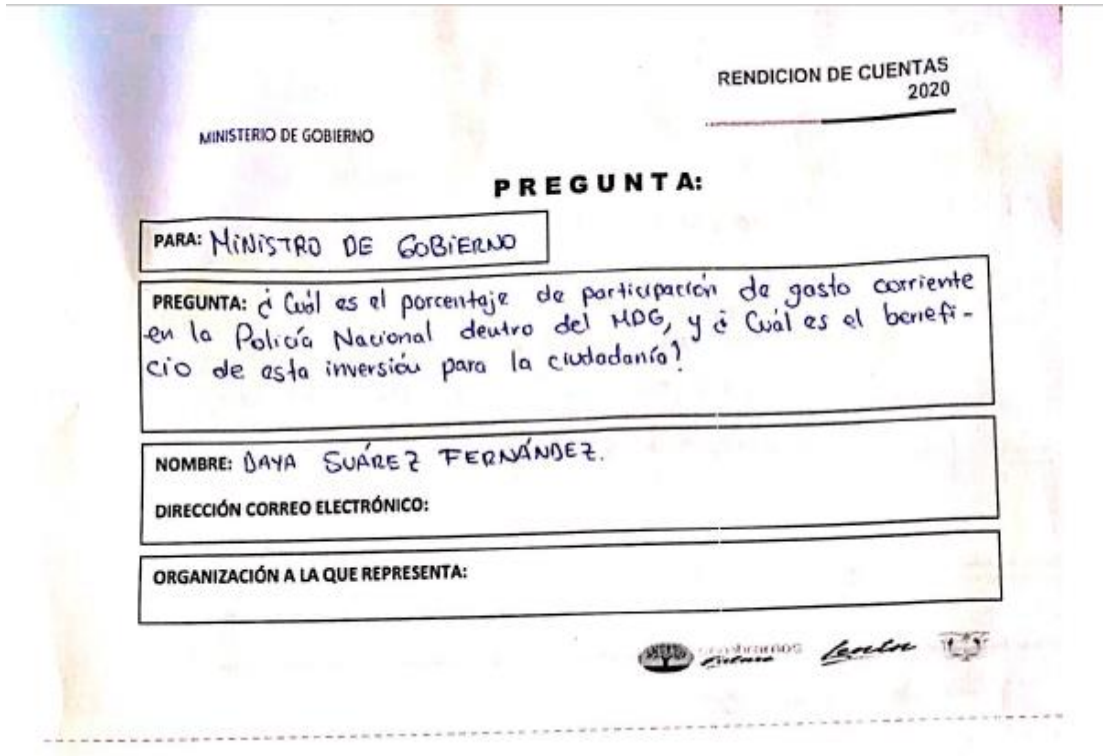 RENDICION DE CUENTAS
2020
MINISTERIO DE GOBIERNO
PREGUNTA:
PARA: MINISTRO DE GOBIERNO
PREGUNTA: ¿ Cuál es el porcentaje de participación de gasto corriente
en la Policía Nacional dentro del MDG, y ¿ Cuál es el benefi-
cio de esta inversión para la ciudadanía?
NOMBRE: DAYA SUÁREZ FERNÁNDEZ.
DIRECCIÓN CORREO ELECTRÓNICO:
ORGANIZACIÓN A LA QUE REPRESENTA:
Lenín